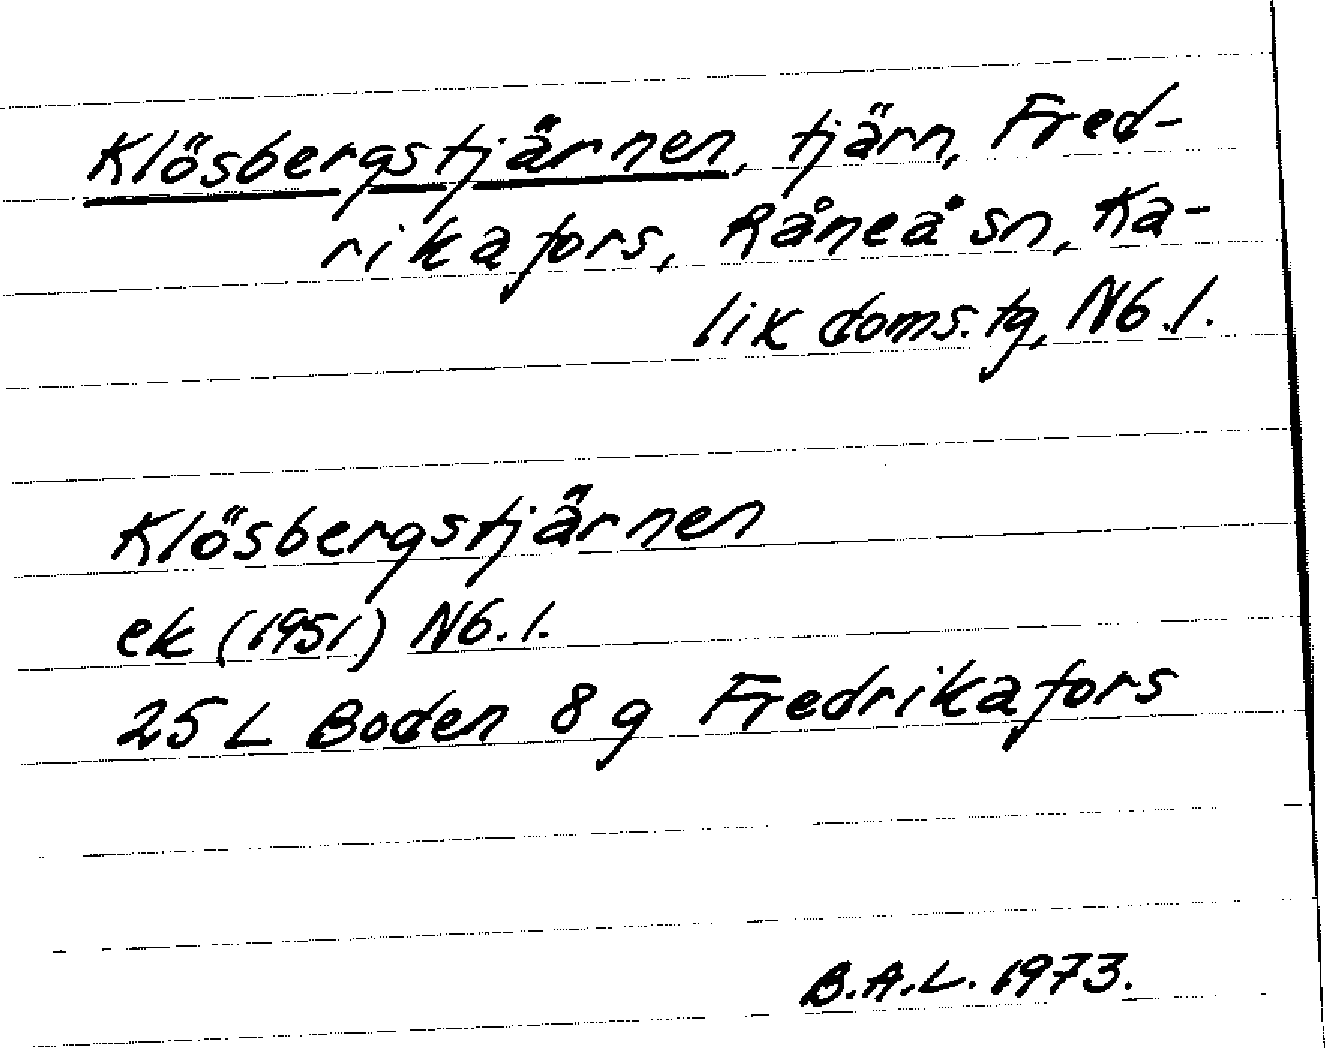 Klösbergstjärnen, tjärn, Fred-
rikafors, Råneå sn, Ka-
lik doms. tg, Nb. l.
Klösbergstjärnen
ek (1951) Nb. l.
25 L Boden 8 g Fredrikafors
B.A.L. 1973.